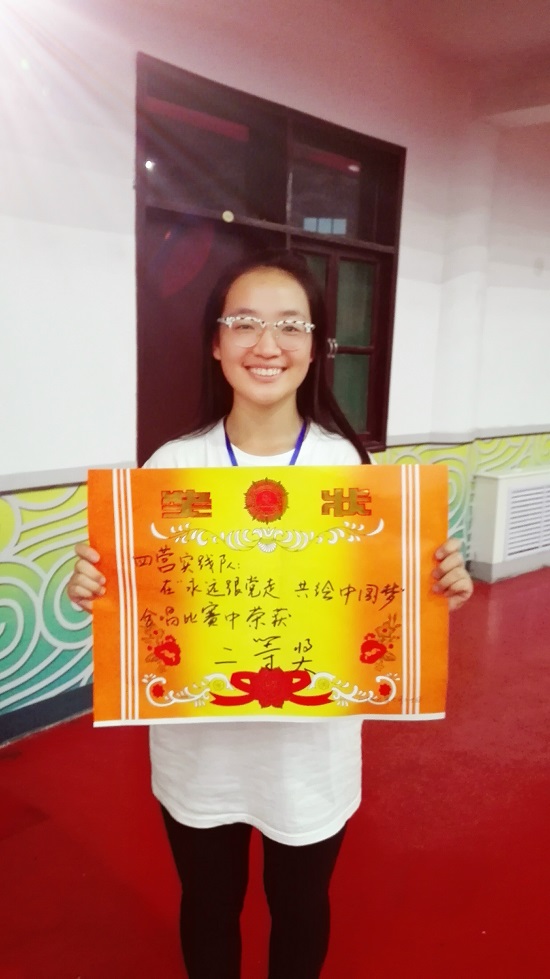 奖 状
四营实践队:
在"永远跟党走 共绘中国梦"
合唱比赛中荣获
二等奖